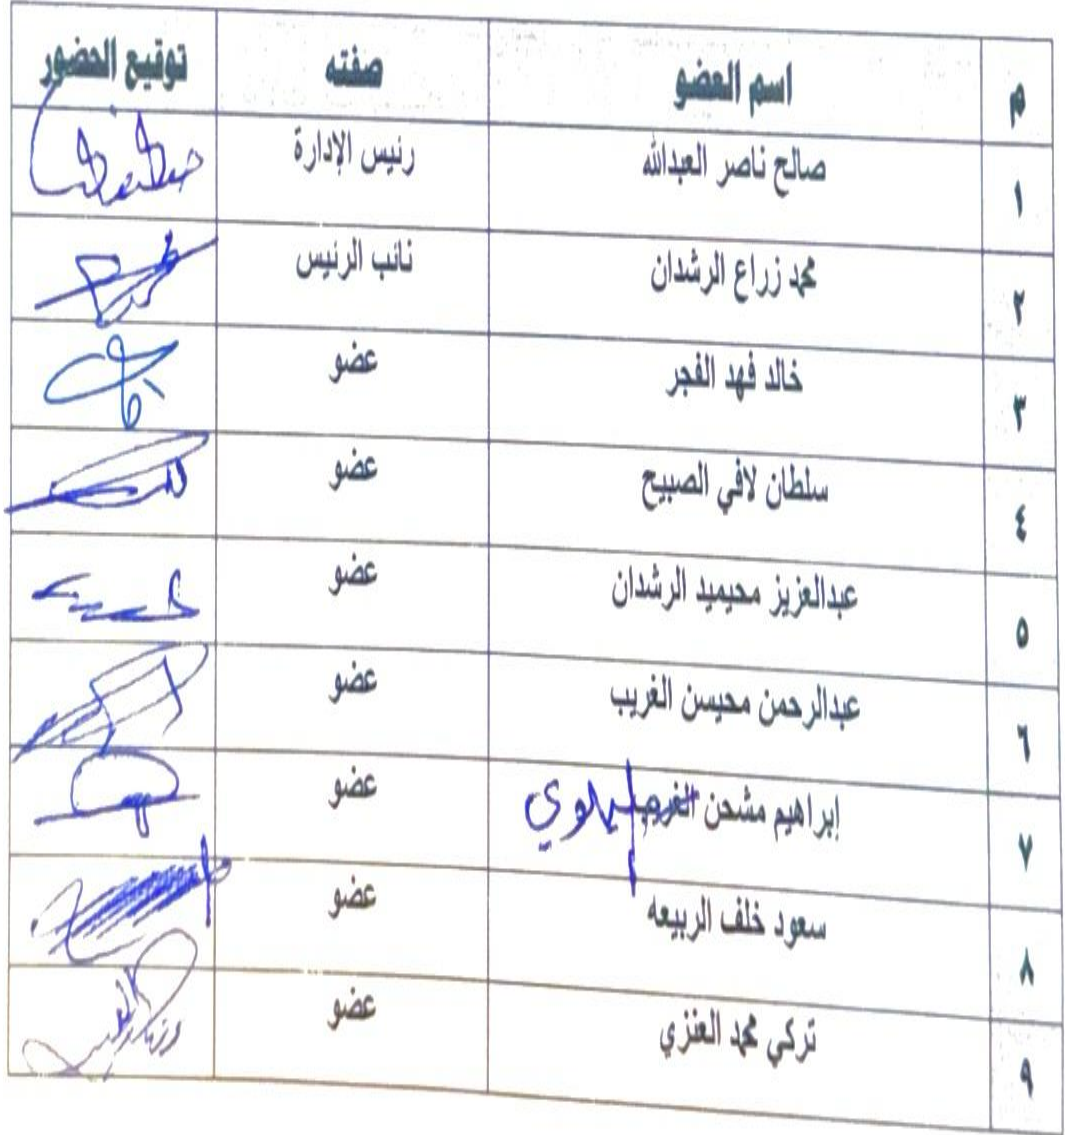 م اسم العضو صفته توقيع الحضور
١ صالح ناصر العبدالله رئيس الإدارة
٢ محمد زراع الرشدان نائب الرئيس
٣ خالد فهد الفجر عضو
٤ سلطان لافي الصبيح عضو
٥ عبدالعزيز محيميد الرشدان عضو
٦ عبدالرحمن محيسن الغريب عضو
٧ إبراهيم مشحن عضو
٨ سعود خلف الربيعه عضو
٩ تركي محمد العنزي عضو